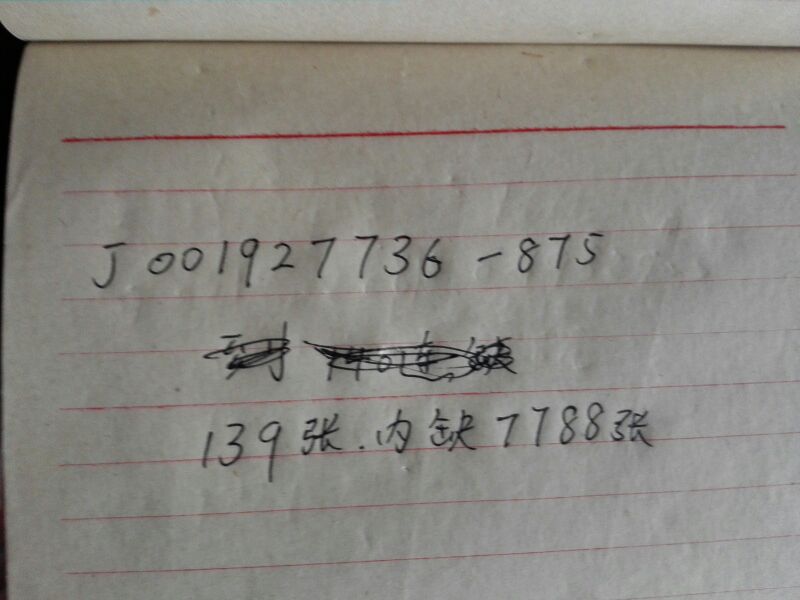 J001927736-875
139张.内缺7788张